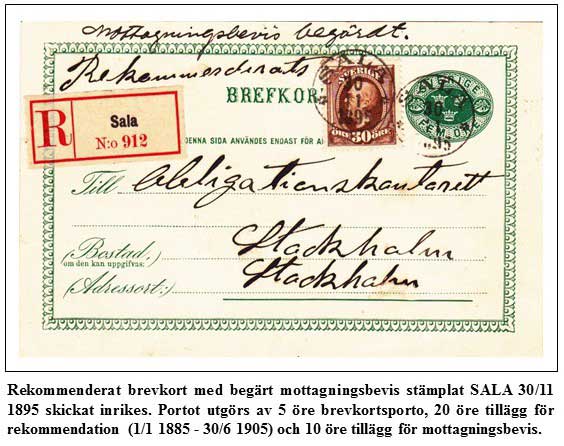 Mottagningsbevis begärdt.
Rekommenderats
BREFKOR
SVERIGE
30 ÖRE
SVERIGE
FEM ÖRE
SALA
1895
R
Sala
N:o 912
DENNA SIDA ANVÄNDES ENDAST FÖR A
Till Obligationskontorett
(Bostad,
om den kan uppgifvas:
Stockholm
(Adressort:)
Stockholm
Rekommenderat brevkort med begärt mottagningsbevis stämplat SALA 30/11
1895 skickat inrikes. Portot utgörs av 5 öre brevkortsporto, 20 öre tillägg för
rekommendation (1/1 1885 - 30/6 1905) och 10 öre tillägg för mottagningsbevis.